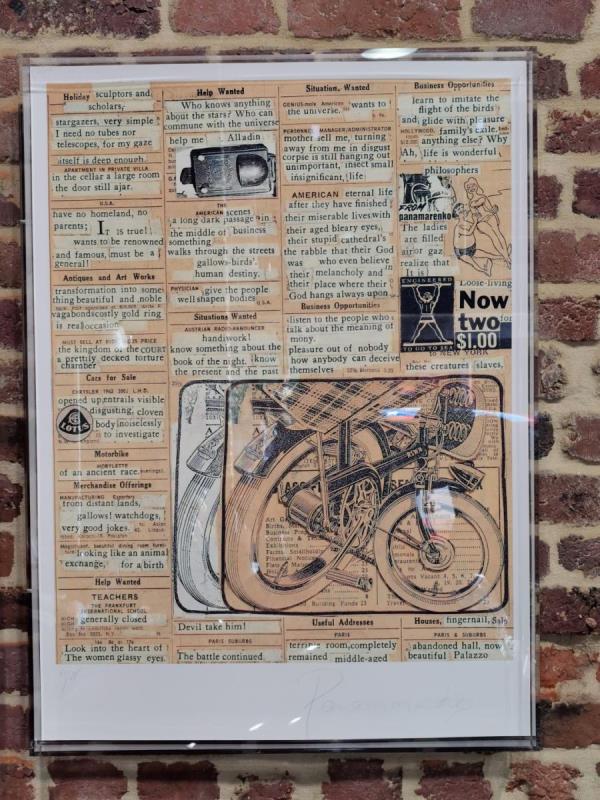 Holiday sculptors and
scholars,
stargazers, very simple
I need no tubes nor
telescopes, for my gaze
itself is deep enough.
APARTMENT IN PRIVATE VILLA
in the cellar a large room
the door still ajar.
U.S.A.
have no homeland, no
parents; It is true!
wants to be renowned
and famous, must be a
general!
Antiques and Art Works
transformation into some
thing beautiful and noble
vagabonds costly gold ring
is real occasion
MUST SELL AT PRICE
the kingdom of the COURT
a prettily decked torture
chamber
Cars for Sale
CHRYSLER 1962 300J, L.H.D.
opened up, entrails visible
disgusting, cloven
LOTUS
body (noiselessly
to investigate
Motorbike
MOBYLETTE
of an ancient race.
Merchandise Offerings
MANUFACTURING
from distant lands,
gallows! watchdogs,
very good jokes.
looking like an animal
exchange, for a birth
Help Wanted
TEACHERS
THE FRANKFURT
INTERNATIONAL SCHOOL
generally closed
Look into the heart of
The women glassy eyes.
Help Wanted
Who knows anything
about the stars? Who can
commune with the universe
help me Alladin
THE
AMERICAN scenes
a long dark passage in
the middle of business
something
walks through the streets
gallows-birds'
human destiny.
PHYSICIAN give the people
well shaped bodies
U.S.A.
Situations Wanted
AUSTRIAN RADIO-ANNOUNCER
handiwork!
know something about the
book of the night. I know
the present and the past
Situation, Wanted
GENIUS-male American wants to
the universe.
PERSONNEL MANAGER/ADMINISTRATOR
mother sell me, turning
away from me in disgust
corpse is still hanging out
unimportant, insect small
insignificant, life
AMERICAN eternal life
after they have finished
their miserable lives with
their aged bleary eyes,
their stupid cathedral's
the rabble that their God
was who even believe
their melancholy and in
their place where their
God hangs always upon
Business Opportunities
listen to the people who
talk about the meaning of
mony.
pleasure out of nobody
how anybody can deceive
themselves
Business Opportunities
learn to imitate the
flight of the birds
and glide with pleasure
HOLLYWOOD, family's exile,
anything else? Why
Ah, life is wonderful
philosophers
panamarenko
The ladies
are filled
air or gaz
realize that
It is
Loose-living
ENGINEERED
TO GO TO SEA
Now
two
$1.00
to NEW YORK
these creatures slaves,
Devil take him!
PARIS SUBURBS
The battle continued
Useful Addresses
PARIS
terrible room, completely
remained middle-aged
Houses, fingernail, Sale
PARIS & SUBURBS
abandoned hall, now
beautiful Palazzo
Panamarenko